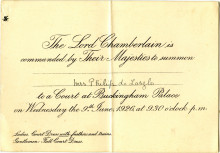 The Lord Chamberlain is
commanded by Their Majesties to summon
Miss Philipa de
to a Court at Buckingham Palace
on Wednesday the 9th June, 1926, at 9.30 o'clock p.m.
Ladies: Court Dress with feathers and trains.
Gentlemen: Full Court Dress.